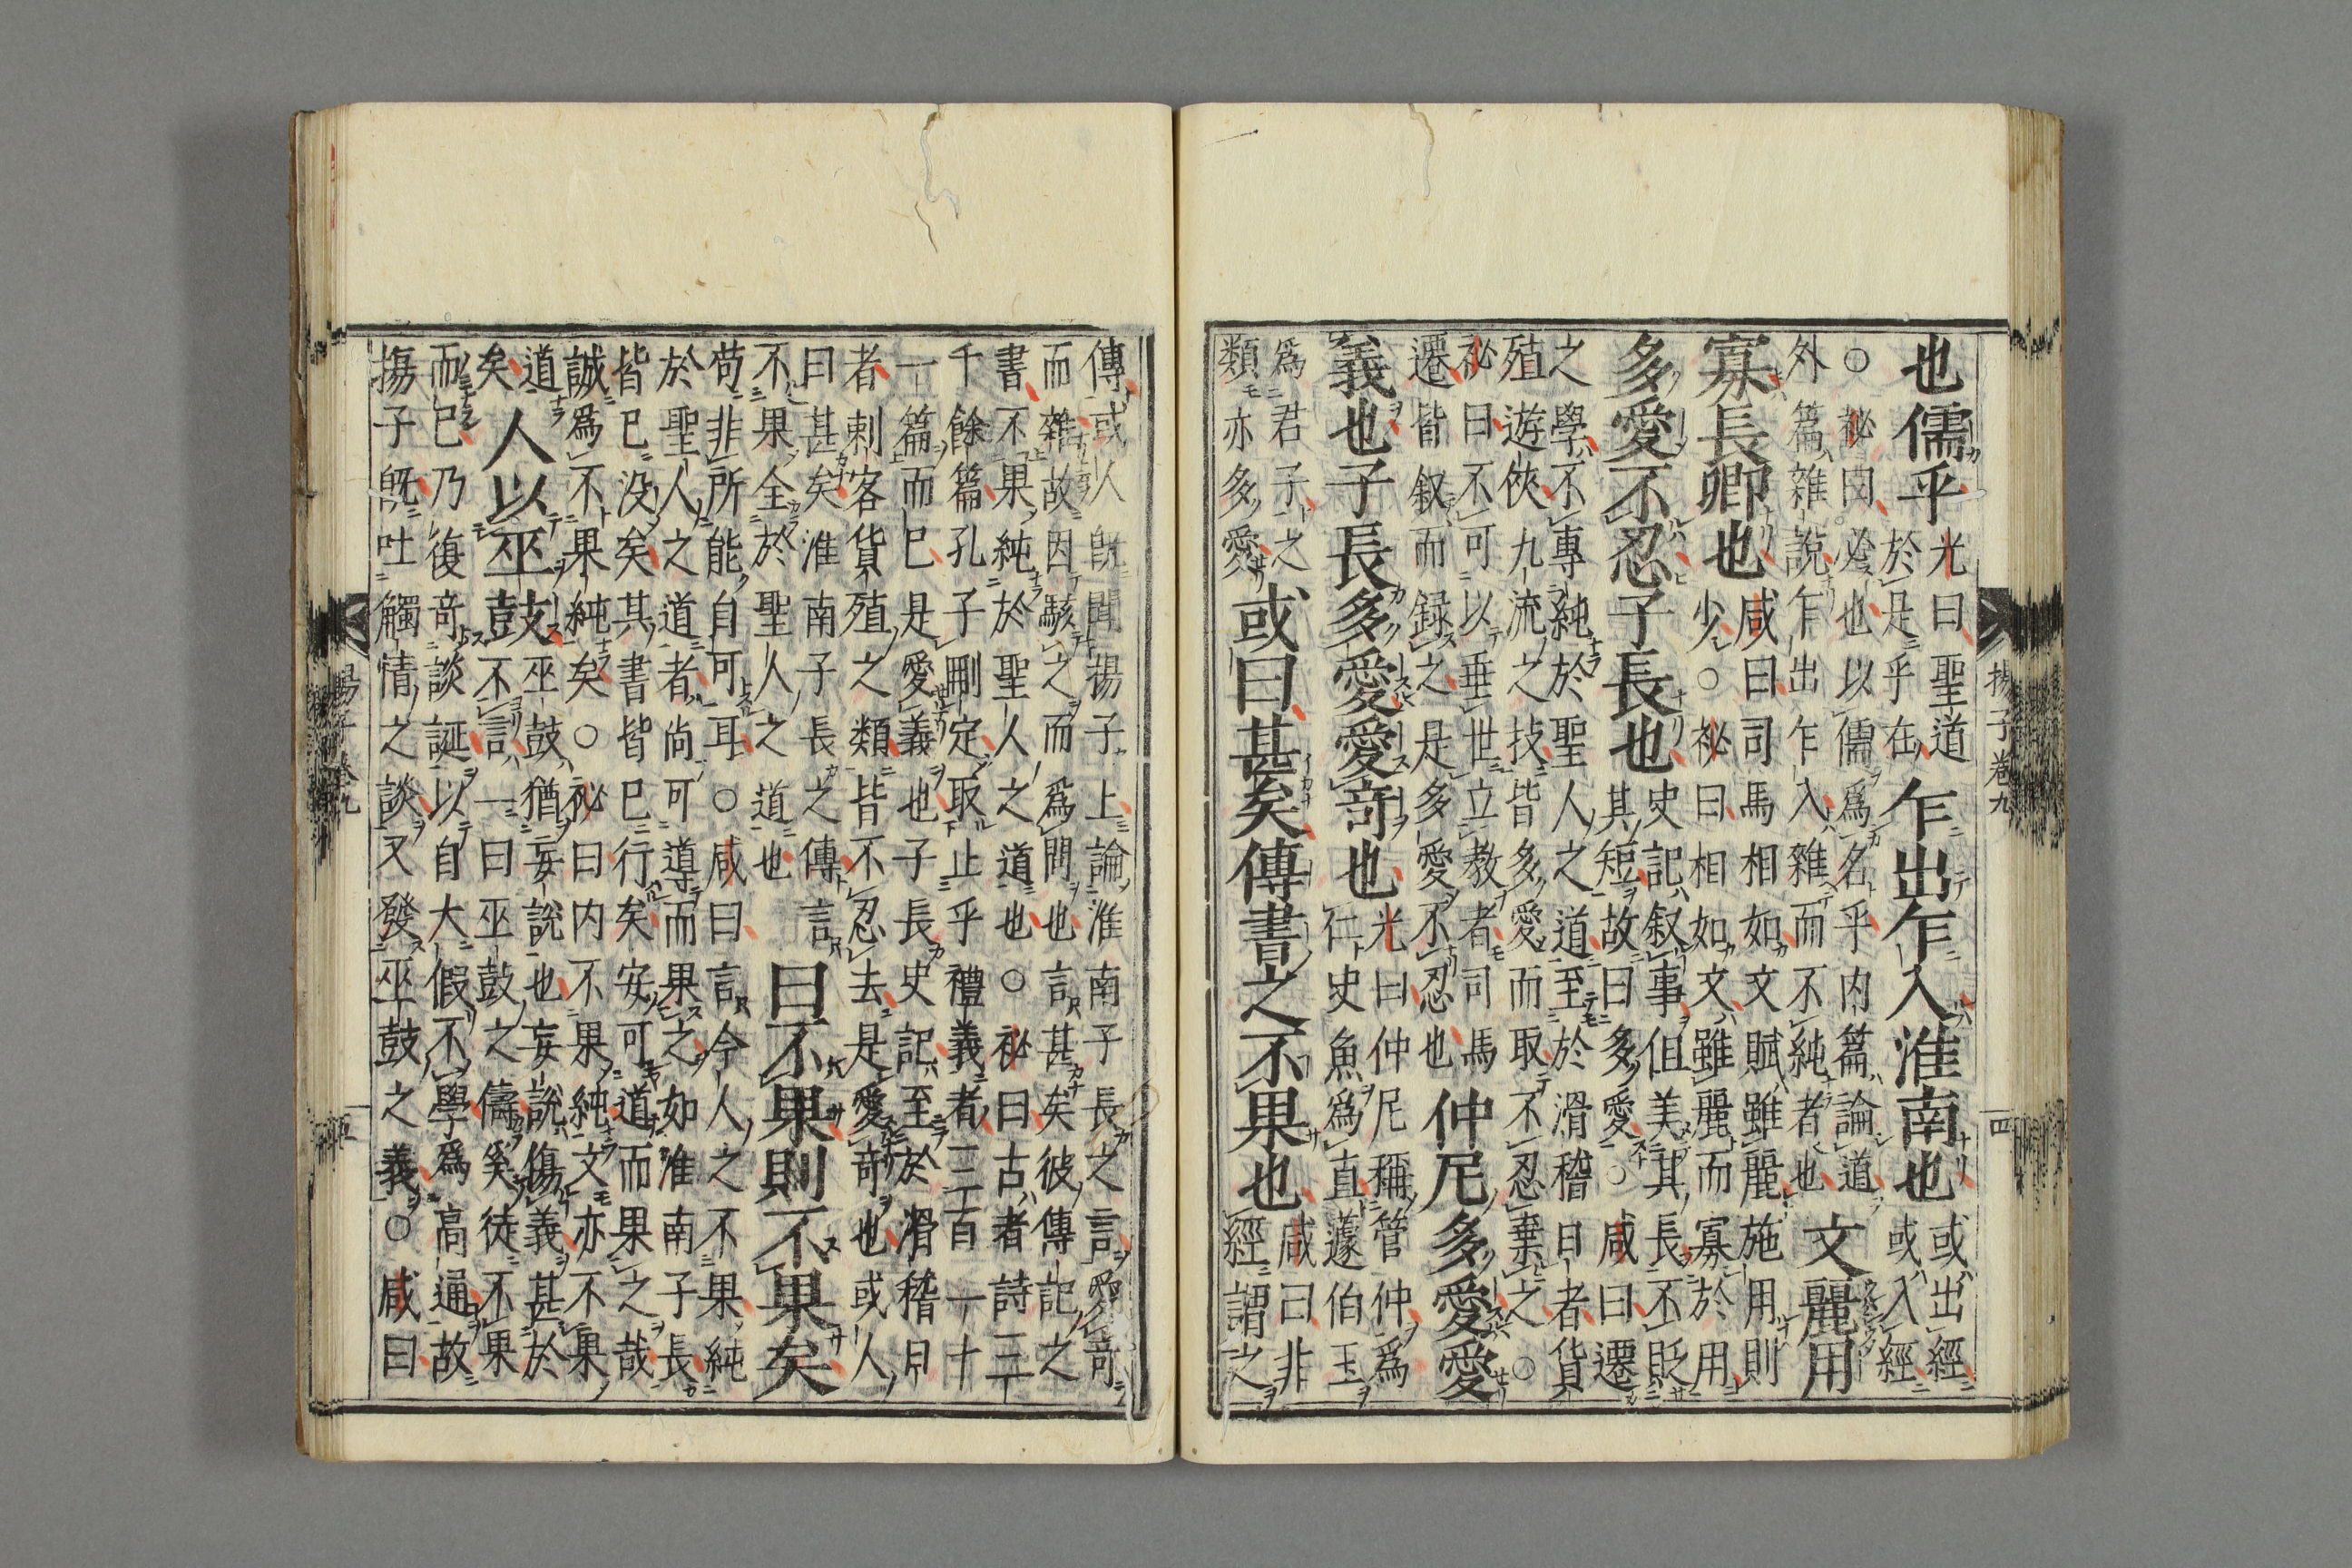 也儒乎
光曰聖道
於是乎在
乍出乍入淮南也
或出經
或入經
○祕曰必也以儒爲名乎内篇論道
外篇雜説乍出乍入雜而不純者也
文麗用
寡長卿也
咸曰司馬相如文賦雖麗施用則
少○祕曰相如文雖麗而寡於用
多愛不忍子長也
史記叙事但美其長不貶
其短故曰多愛○咸曰遷
之學不專純於聖人之道至於滑稽日者貨
殖遊俠九流之技皆多愛而取不忍棄之○
祕曰不可以垂世立教者司馬
遷皆叙而録之是多愛不忍也
仲尼多愛愛
義也子長多愛愛竒也
光曰仲尼稱管仲爲
仁史魚爲直蘧伯玉
爲君子之
類亦多愛
或曰甚矣傳書之不果也
咸曰非
經謂之
揚子卷九
四
傳或人既聞揚子上論淮南子長之言愛竒
而雜故因駭之而爲問也言甚矣彼傳記之
書不果純於聖人之道也○祕曰古者詩三
千餘篇孔子刪定取止乎禮義者三百一十
一篇而已是愛義也子長史記至於滑稽日
者刺客貨殖之類皆不忍去是愛竒也或人
曰甚矣淮南子長之傳言
不果全於聖人之道也
曰不果則不果矣
苟非所能自可耳○咸曰言今人之不果純
於聖人之道者尚可導而果之如淮南子長
皆已没矣其書皆已行矣安可道而果之哉
誠爲不果純矣○祕曰内不果純文亦不果
道
矣
人以巫鼓
巫鼓猶妄説也妄説傷義甚於
不言一曰巫鼓之儔奚徒不果
而已乃復竒談誕以自大假不學爲高通故
揚子既吐觸情之談又發巫鼓之義○咸曰
揚子卷九
五